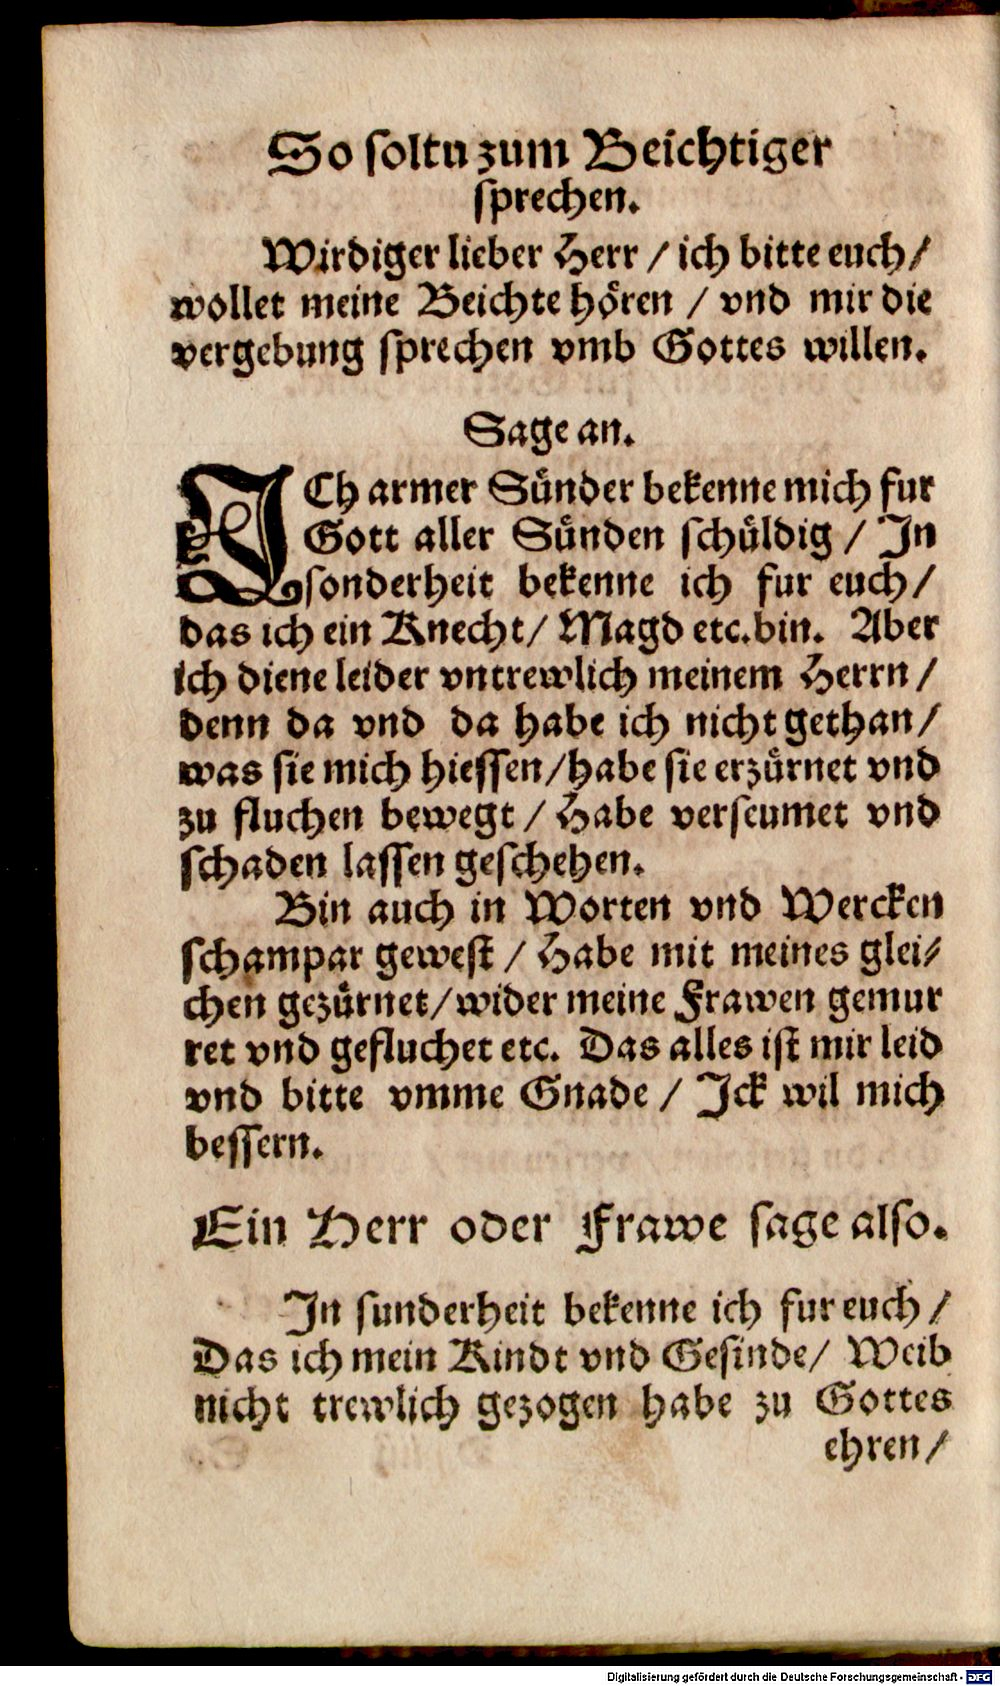 So soltu zum Beichtiger
sprechen.
Wirdiger lieber Herr / ich bitte euch /
wollet meine Beichte hören / vnd mir die
vergebung sprechen vmb Gottes willen.
Sage an.
ICh armer Sünder bekenne mich fur
Gott aller Sünden schüldig / In
sonderheit bekenne ich fur euch /
das ich ein Knecht / Magd etc. bin. Aber
ich diene leider vntrewlich meinem Herrn /
denn da vnd da habe ich nicht gethan /
was sie mich hiessen / habe sie erzürnet vnd
zu fluchen bewegt / Habe verseumet vnd
schaden lassen geschehen.
Bin auch in Worten vnd Wercken
schampar gewest / Habe mit meines glei-
chen gezürnet / wider meine Frawen gemur
ret vnd gefluchet etc. Das alles ist mir leid
vnd bitte vmme Gnade / Ick wil mich
bessern.
Ein Herr oder Frawe sage also.
In sunderheit bekenne ich fur euch /
Das ich mein Kindt vnd Gesinde / Weib
nicht trewlich gezogen habe zu Gottes
ehren /
Digitalisierung gefördert durch die Deutsche Forschungsgemeinschaft - DFG